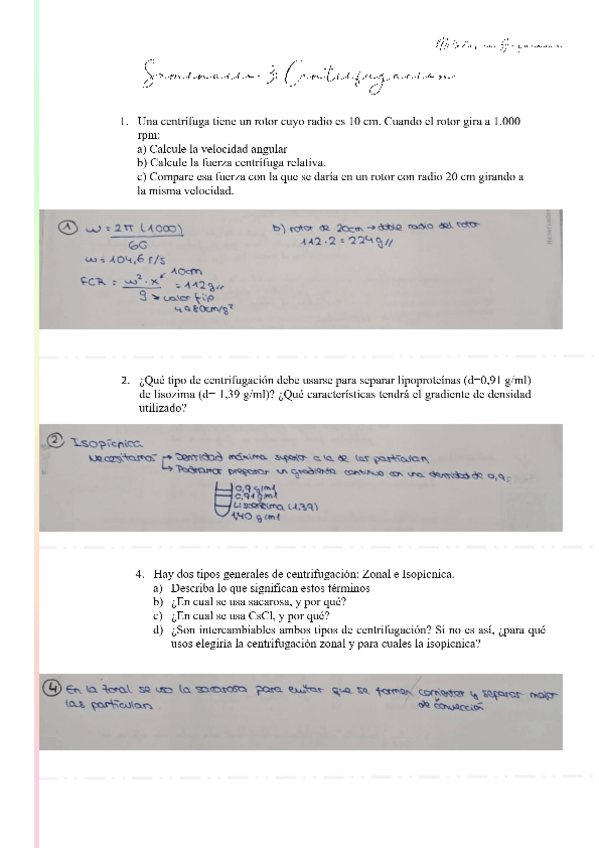 Seminario 3: Centrifugación
1. Una centrífuga tiene un rotor cuyo radio es 10 cm. Cuando el rotor gira a 1.000
rpm:
a) Calcule la velocidad angular
b) Calcule la fuerza centrífuga relativa.
c) Compare esa fuerza con la que se daría en un rotor con radio 20 cm girando a
la misma velocidad.
1 ω = 2π (1000) b) rotor de 20cm → doble radio del rotor
60 112·2 = 224g//
ω = 104,6 r/s
10cm
FCR = ω²·x = 112g//
g → valor fijo
980cm/g²
2. ¿Qué tipo de centrifugación debe usarse para separar lipoproteínas (d=0,91 g/ml)
de lisozima (d= 1,39 g/ml)? ¿Qué características tendrá el gradiente de densidad
utilizado?
2 Isopícnica
Necesitamos → Densidad máxima superior a la de las partículas
↳ Podríamos preparar un gradiente continuo con una densidad de 0,9:
0,9 g/ml
0,91 g/ml
Lisozima (1,39)
1,40 g/ml
4. Hay dos tipos generales de centrifugación: Zonal e Isopícnica.
a) Describa lo que significan estos términos
b) ¿En cual se usa sacarosa, y por qué?
c) ¿En cual se usa CsCl, y por qué?
d) ¿Son intercambiables ambos tipos de centrifugación? Si no es así, ¿para qué
usos elegiría la centrifugación zonal y para cuales la isopícnica?
4 En la zonal se usa la sacarosa para evitar que se formen corrientes y separar mejor
las partículas. de convección